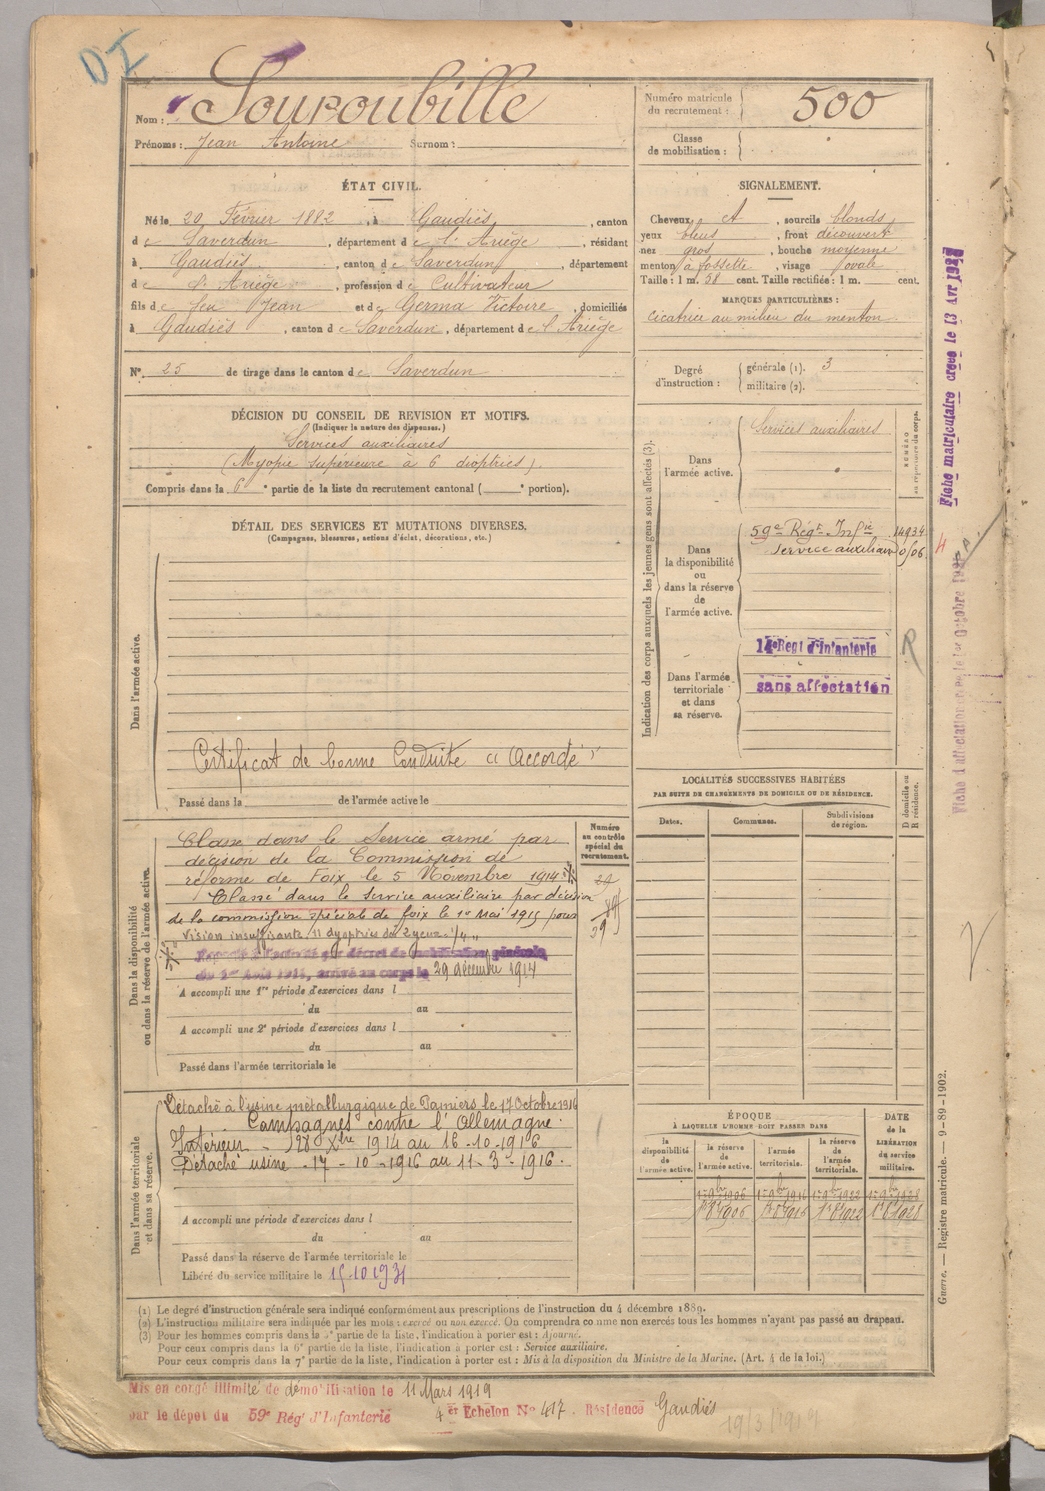 DI
Nom : Souroubille
Prénoms : Jean Antoine Surnom :
Numéro matricule du recrutement : 500
Classe de mobilisation :
ÉTAT CIVIL.
Né le 20 Février 1882, à Gaudiès, canton
de Saverdun, département de l'Ariège, résidant
à Gaudiès, canton de Saverdun, département
de l'Ariège, profession de Cultivateur
fils de feu Jean et de Germa Victoire, domiciliés
à Gaudiès, canton de Saverdun, département de l'Ariège
N° 25 de tirage dans le canton de Saverdun
SIGNALEMENT.
Cheveux et, sourcils blonds
yeux bleus, front découvert
nez gros, bouche moyenne
menton à fossette, visage ovale
Taille : 1 m. 58 cent. Taille rectifiée : 1 m. cent.
MARQUES PARTICULIÈRES :
cicatrice au milieu du menton
Degré d'instruction : générale (1). 3
militaire (2).
DÉCISION DU CONSEIL DE REVISION ET MOTIFS.
(Indiquer la nature des dispenses.)
Services auxiliaires
(Myopie supérieure à 6 dioptries).
Compris dans la 6e partie de la liste du recrutement cantonal ( e portion).
DÉTAIL DES SERVICES ET MUTATIONS DIVERSES.
(Campagnes, blessures, actions d'éclat, décorations, etc.)
Dans l'armée active.
Certificat de bonne Conduite "Accordé"
Passé dans la de l'armée active le
Indication des corps auxquels les jeunes gens sont affectés (3).
NUMÉRO au répertoire du corps.
Dans l'armée active.
Services auxiliaires
Dans la disponibilité ou dans la réserve de l'armée active.
59e Régt Infie 14934
Service auxiliaire 0/06
Dans l'armée territoriale et dans sa réserve.
14e Régt d'Infanterie
sans affectation
R
Fiche matriculaire créée le 13 Avr
LOCALITÉS SUCCESSIVES HABITÉES
PAR SUITE DE CHANGEMENTS DE DOMICILE OU DE RÉSIDENCE.
Dates. Communes. Subdivisions de région. D domicile ou R résidence.
Dans la disponibilité ou dans la réserve de l'armée active.
Numéro au contrôle spécial du recrutement.
Classé dans le Service armé par
décision de la Commission de
réforme de Foix le 5 Novembre 1914
Classé dans le service auxiliaire par décision
de la commission spéciale de foix le 1er Mai 1915 pour
Vision insuffisante, 11 dyoptries des 2 yeux
29 décembre 1914
A accompli une 1re période d'exercices dans l
du au
A accompli une 2e période d'exercices dans l
du au
Passé dans l'armée territoriale le
Dans l'armée territoriale et dans sa réserve.
Détaché à l'usine métallurgique de Pamiers le 17 Octobre 1916
Campagnes contre l'Allemagne.
Intérieur - 28 Xbre 1914 au 16-10-1916
Détaché usine - 17-10-1916 au 11-3-1916.
A accompli une période d'exercices dans l
du au
Passé dans la réserve de l'armée territoriale le
Libéré du service militaire le 15.10.1931
ÉPOQUE
À LAQUELLE L'HOMME DOIT PASSER DANS
la disponibilité de l'armée active. la réserve de l'armée active. l'armée territoriale. la réserve de l'armée territoriale.
DATE de la LIBÉRATION du service militaire.
1er 9bre 1906 1er 9bre 1916 1er 9bre 1922 1er 9bre 1928
1er 8bre 1906 1er 8bre 1916 1er 8bre 1922 1er 8bre 1928
(1) Le degré d'instruction générale sera indiqué conformément aux prescriptions de l'instruction du 4 décembre 1889.
(2) L'instruction militaire sera indiquée par les mots : exercé ou non exercé. On comprendra comme non exercés tous les hommes n'ayant pas passé au drapeau.
(3) Pour les hommes compris dans la 5e partie de la liste, l'indication à porter est : Ajourné.
Pour ceux compris dans la 6e partie de la liste, l'indication à porter est : Service auxiliaire.
Pour ceux compris dans la 7e partie de la liste, l'indication à porter est : Mis à la disposition du Ministre de la Marine. (Art. 4 de la loi.)
Guerre. — Registre matricule. — 9-89-1902.
Mis en congé illimité de démobilisation le 11 Mars 1919
par le dépôt du 59e Rég d'Infanterie 4er Echelon N° 417. Résidence Gaudiès